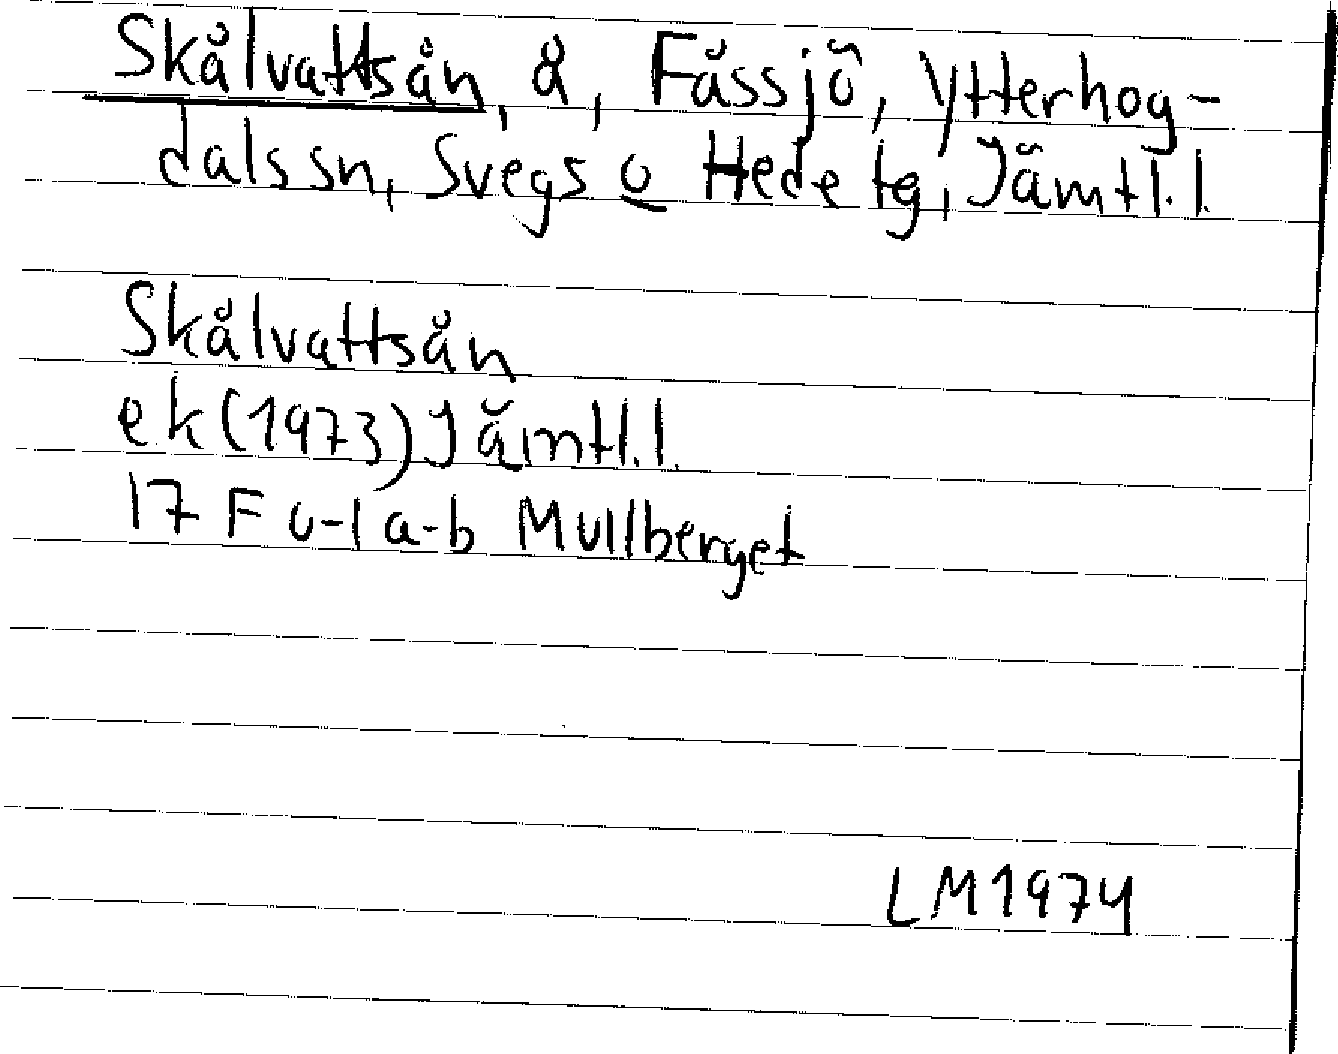 Skålvattsån, å, Fåssjö, Ytterhog-
dals sn, Svegs o Hede tg, Jämtl. l.
Skålvattsån
ek (1973) Jämtl. l.
17 F 0-1 a-b Mullberget
LM 1974